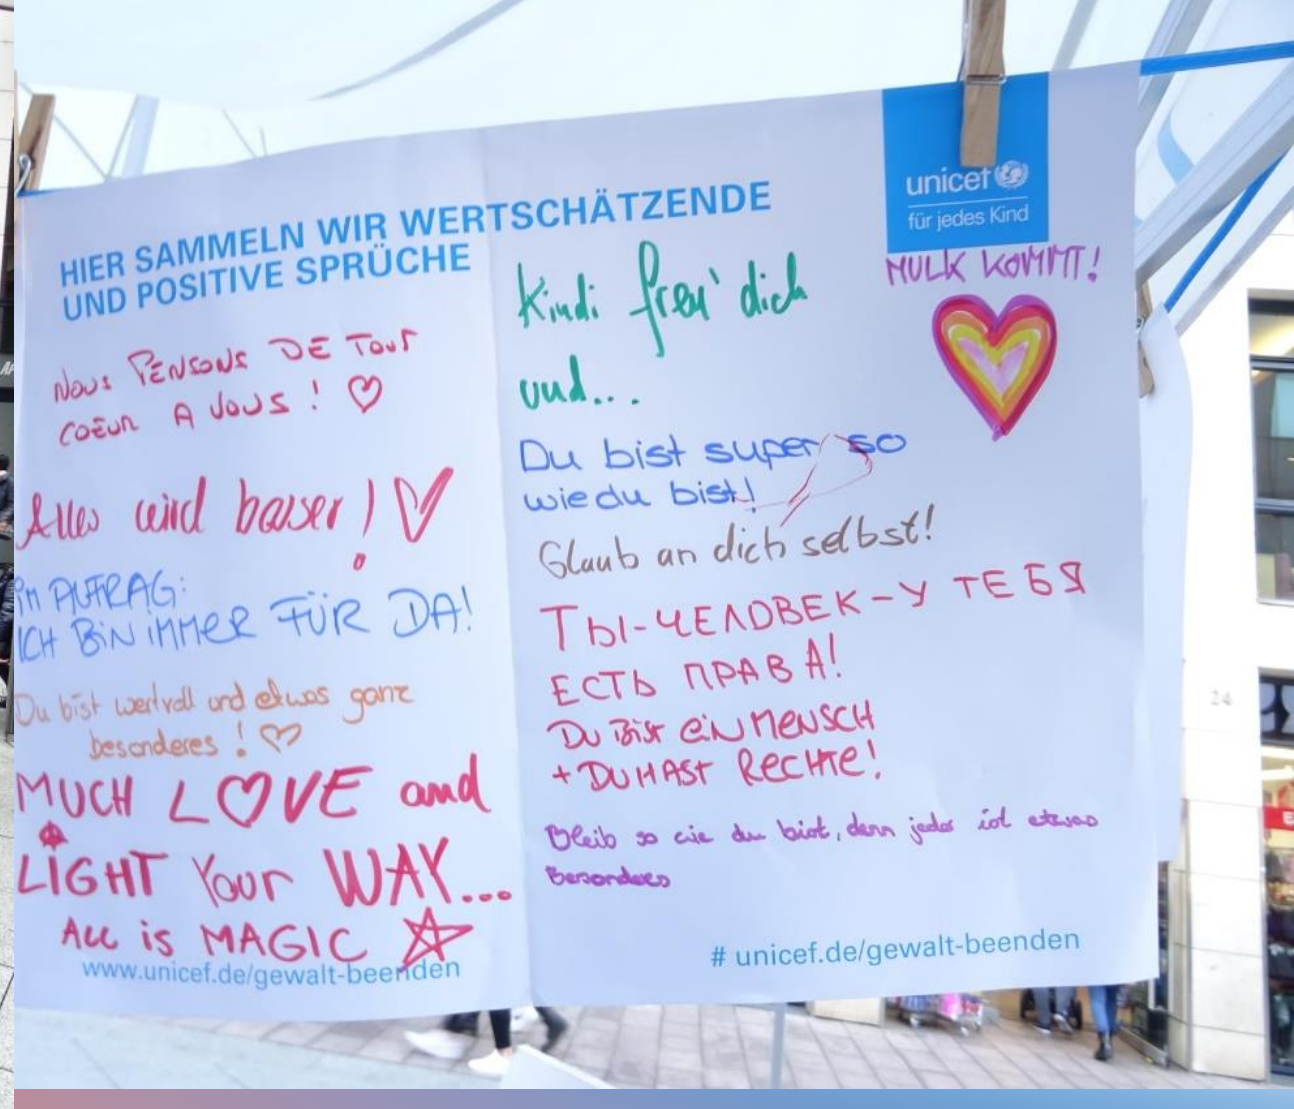 HIER SAMMELN WIR WERTSCHÄTZENDE
UND POSITIVE SPRÜCHE
unicef
für jedes Kind
NOUS PENSONS DE TOUT
COEUR A VOUS ! ♡
Alles wird besser ! ♡
IM AUFTRAG:
ICH BIN IMMER FÜR DA!
Du bist wertvoll und etwas ganz
besonderes ! ♡
MUCH L♡VE and
LIGHT Your WAY...
ALL is MAGIC ☆
www.unicef.de/gewalt-beenden
MULK KOMMT!
Kindi freu' dich
und...
Du bist super so
wie du bist!
Glaub an dich selbst!
ТЫ-ЧЕЛОВЕК-У ТЕБЯ
ЕСТЬ ПРАВА!
DU BIST EIN MENSCH
+ DU HAST RECHTE!
Bleib so wie du bist, denn jeder ist etwas
Besonderes
# unicef.de/gewalt-beenden
24